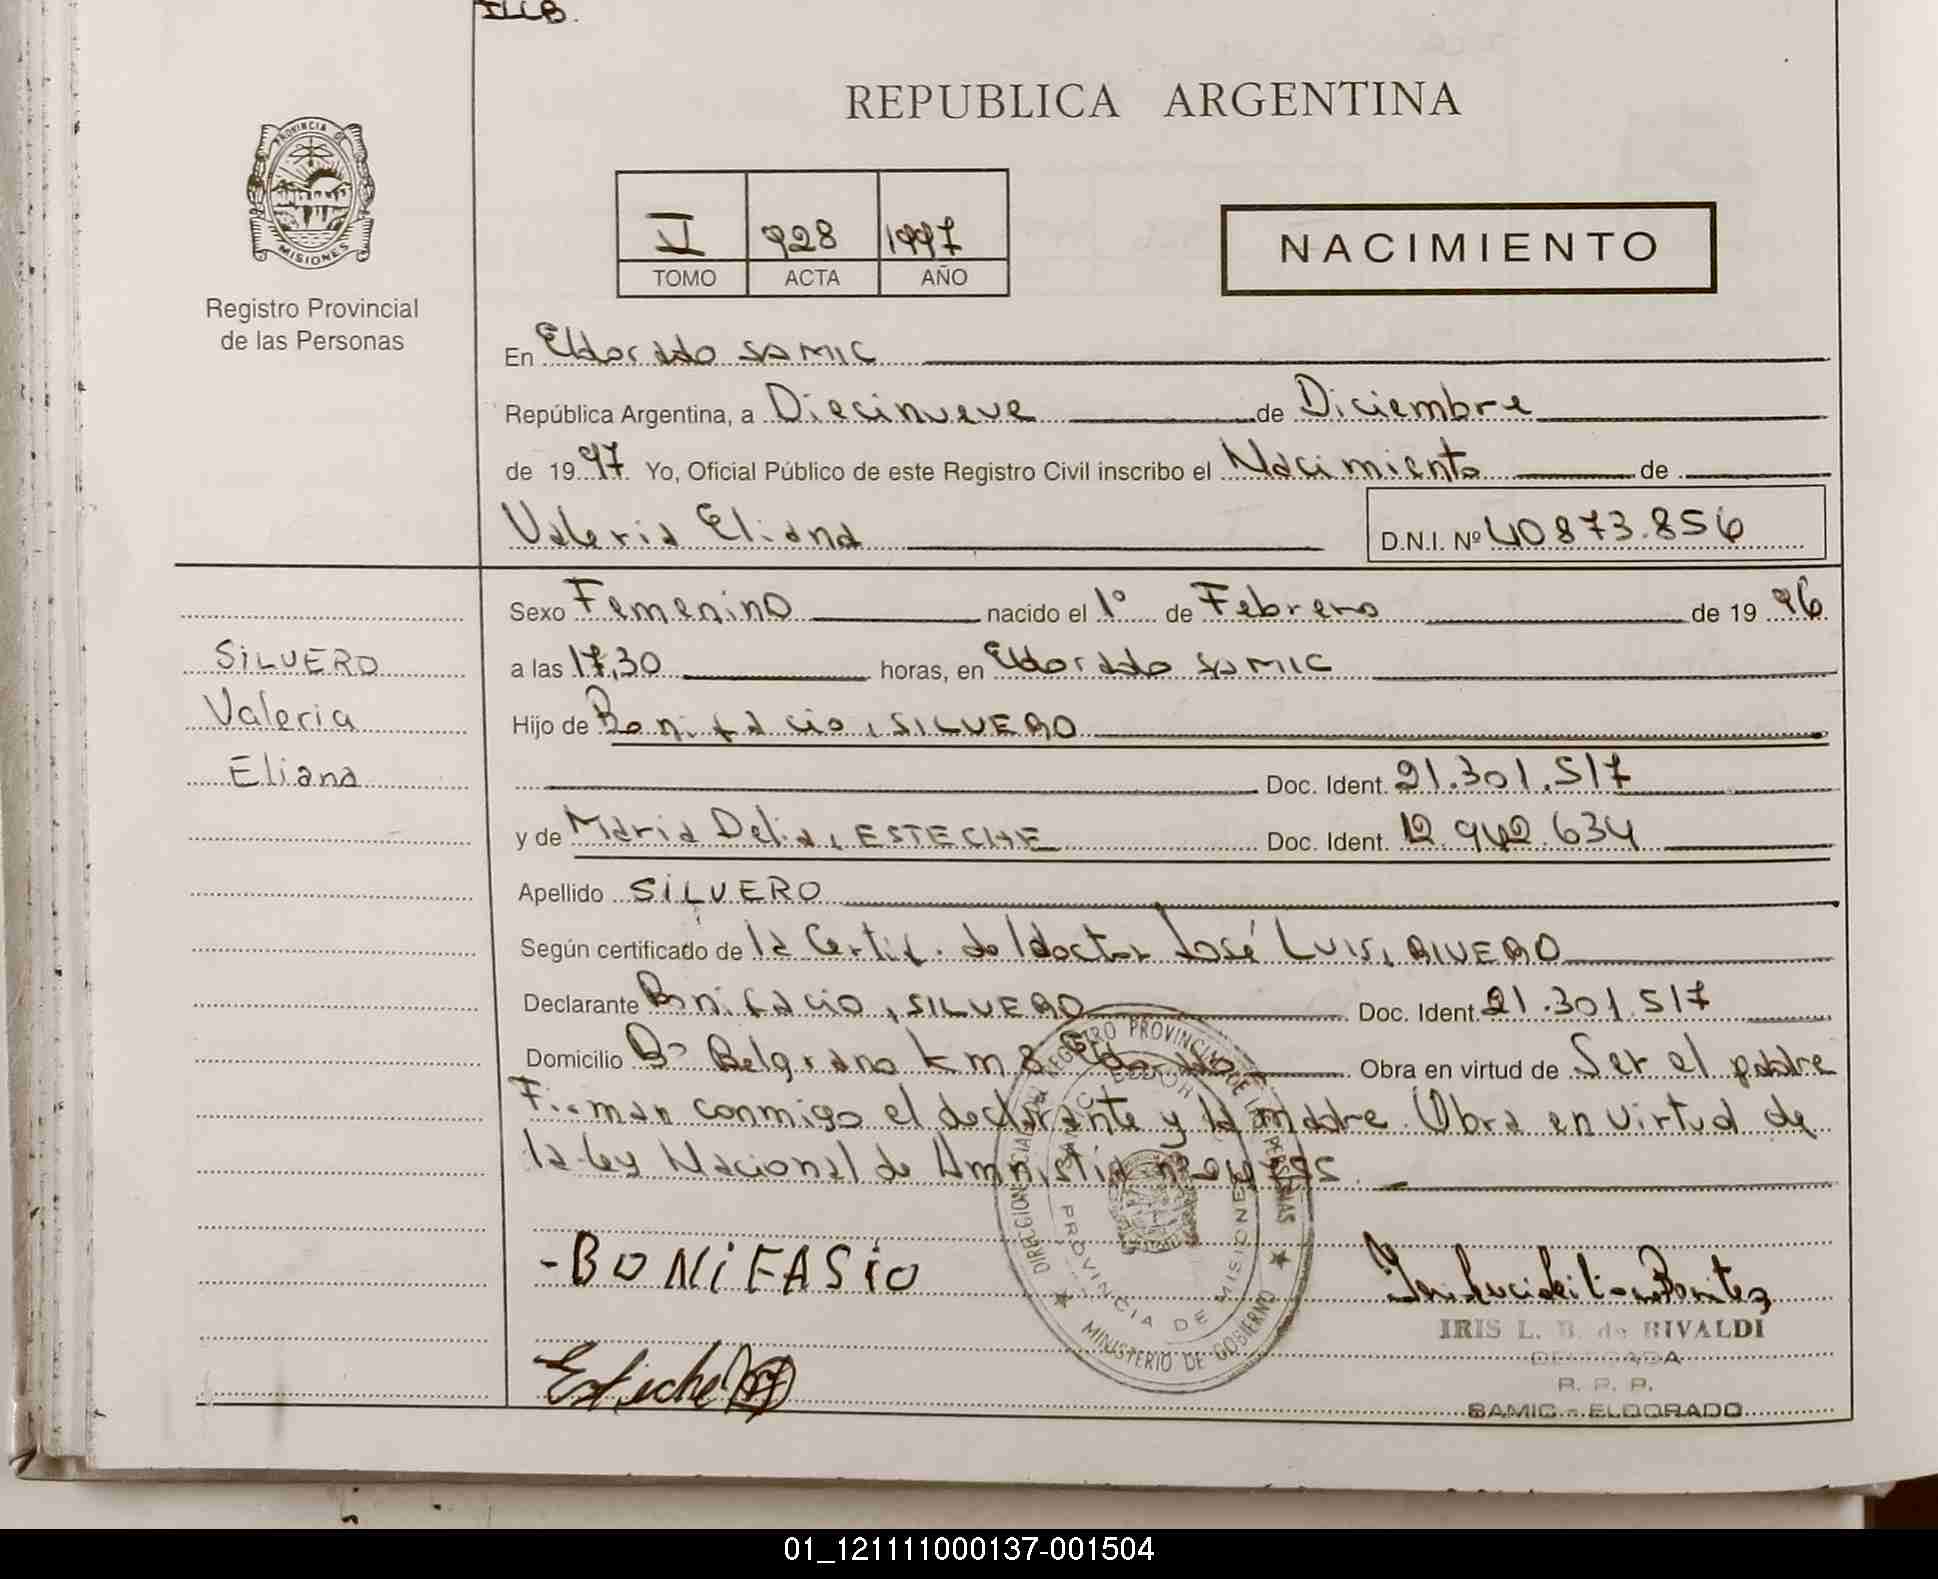 REPUBLICA ARGENTINA
PROVINCIA DE
MISIONES
Registro Provincial
de las Personas
V 928 1997
TOMO ACTA AÑO
NACIMIENTO
En Eldorado SAMIC
República Argentina, a Diecinueve de Diciembre
de 1997 Yo, Oficial Público de este Registro Civil inscribo el Nacimiento de
Valeria Eliana
D.N.I. Nº 40873.856
Sexo Femenino nacido el 1º de Febrero de 1996
SILVERO
a las 17,30 horas, en Eldorado SAMIC
Valeria
Hijo de Bonifacio, SILVERO
Eliana
Doc. Ident. 21.301.517
y de Maria Delia, ESTECHE Doc. Ident. 12.942.634
Apellido SILVERO
Según certificado de la Certif. del doctor José Luis, RIVERO
Declarante Bonifacio, SILVERO Doc. Ident. 21.301.517
Domicilio Bº Belgrano km 8 Eldorado Obra en virtud de Ser el padre
Firman conmigo el declarante y la madre. Obra en virtud de
la ley Nacional de Amnistia nº
DIRECCION REGISTRO PROVINCIAL DE LAS PERSONAS
PROVINCIA DE MISIONES
MINISTERIO DE GOBIERNO
-BONIFASIO
IRIS L. B. de RIVALDI
DELEGADA
R. P. P.
SAMIC - ELDORADO
Esteche
01_121111000137-001504